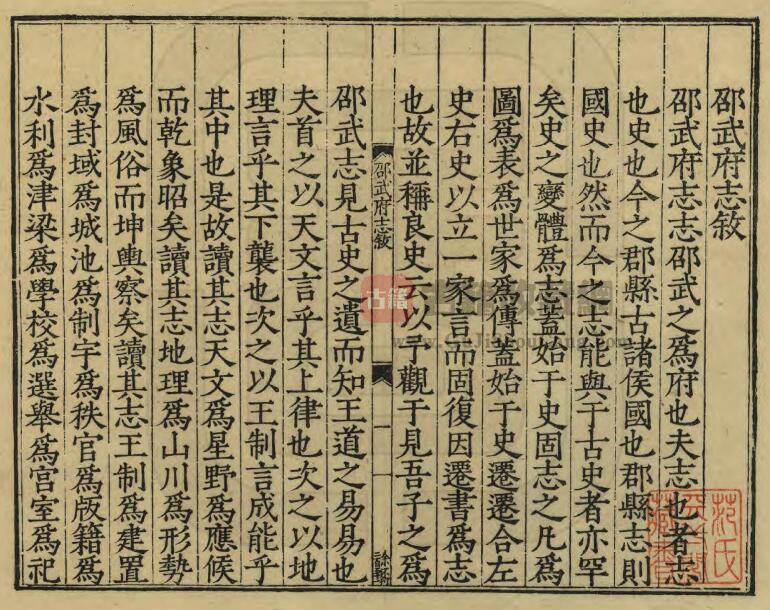 邵武府志敘
邵武府志志邵武之爲府也夫志也者志
也史也今之郡縣古諸侯國也郡縣志則
國史也然而今之志能與于古史者亦罕
矣史之變體爲志蓋始于史固志之凡爲
圖爲表爲世家爲傳蓋始于史遷遷合左
史右史以立一家言而固復因遷書爲志
也故並稱良史云以予觀于見吾子之爲
邵武府志敘
一
邵武志見古史之遺而知王道之易易也
夫首之以天文言乎其上律也次之以地
理言乎其下襲也次之以王制言成能乎
其中也是故讀其志天文爲星野爲應候
而乾象昭矣讀其志地理爲山川爲形勢
爲風俗而坤輿察矣讀其志王制爲建置
爲封域爲城池爲制宇爲秩官爲版籍爲
水利爲津梁爲學校爲選舉爲宮室爲祀
古籍
范氏